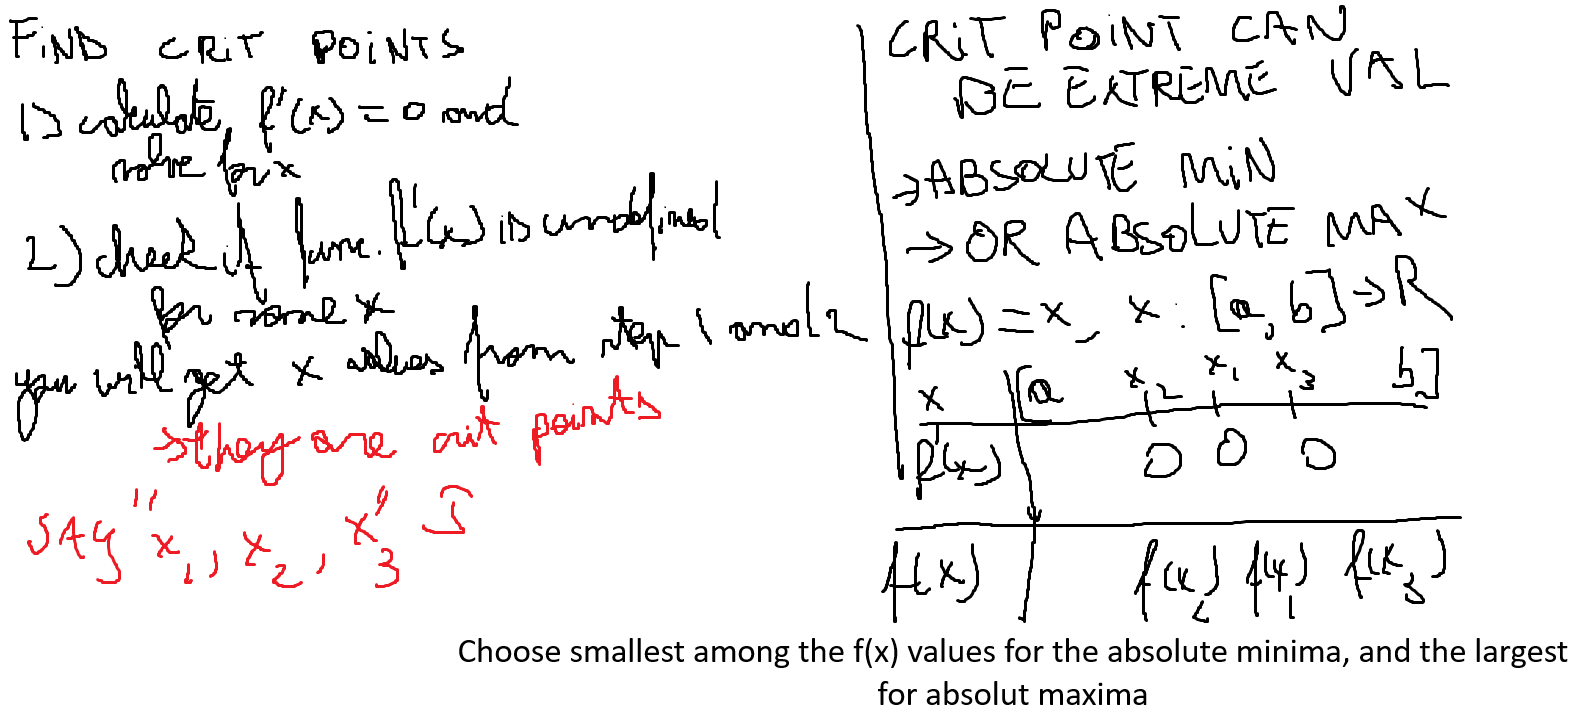 FIND CRIT POINTS
1) calculate f'(x) = 0 and
solve for x
2) check if func. f'(x) is undefined
for some x
you will get x values from step 1 and 2
→ they are crit points
SAY "x₁, x₂, x₃"
CRIT POINT CAN
BE EXTREME VAL
→ ABSOLUTE MIN
→ OR ABSOLUTE MAX
f(x) = x, x : [a, b] → R
x [a x₂ x₁ x₃ b]
f'(x) 0 0 0
f(x) f(x₂) f(x₁) f(x₃)
Choose smallest among the f(x) values for the absolute minima, and the largest
for absolut maxima